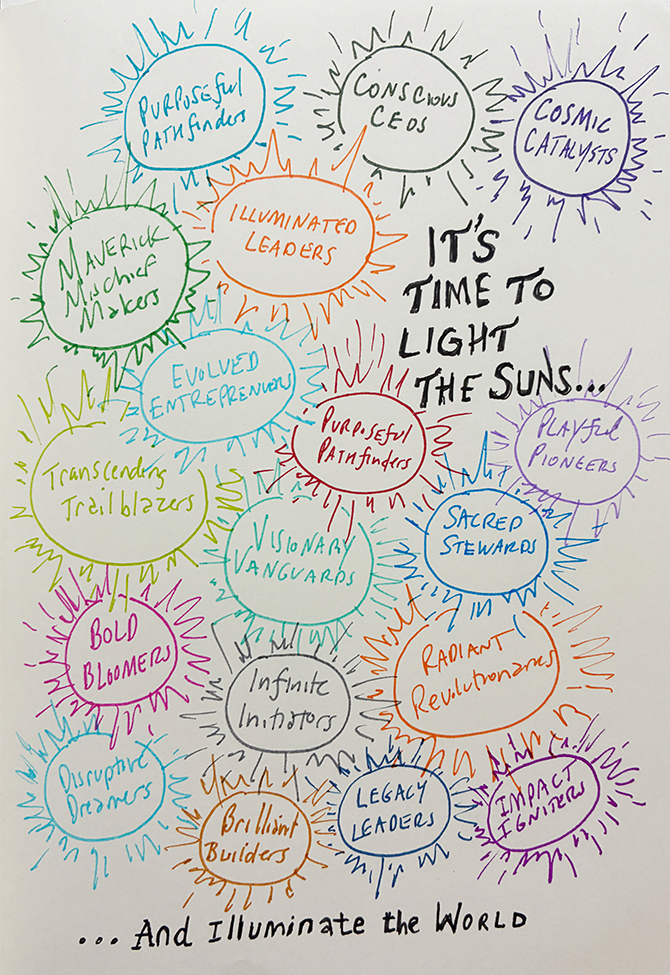 PURPOSEFUL
PATHFINDERS
CONSCIOUS
CEOS
COSMIC
CATALYSTS
ILLUMINATED
LEADERS
MAVERICK
MISCHIEF
MAKERS
IT'S
TIME TO
LIGHT
THE SUNS...
EVOLVED
ENTREPRENUERS
PURPOSEFUL
PATHFINDERS
PLAYFUL
PIONEERS
Transcending
Trailblazers
SACRED
STEWARDS
VISIONARY
VANGUARDS
BOLD
BLOOMERS
RADIANT
Revolutionaries
Infinite
Initiators
Disruptive
Dreamers
LEGACY
LEADERS
IMPACT
IGNITERS
Brilliant
Builders
... And Illuminate the WORLD